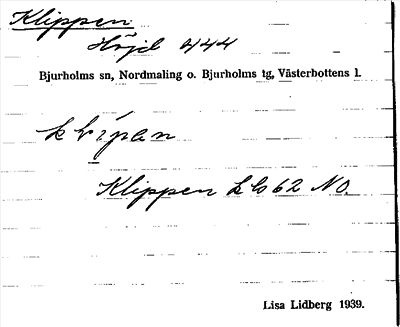 Klippen
Höjd 444
Bjurholms sn, Nordmaling o. Bjurholms tg, Västerbottens l.
Klippen Lb 62 NO
Lisa Lidberg 1939.